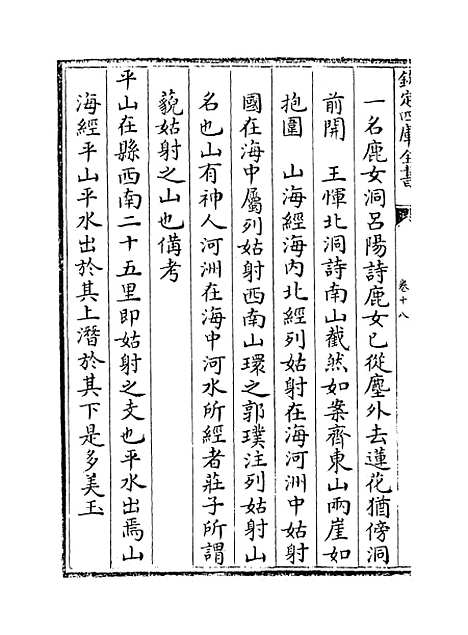 欽定四庫全書
卷十八
一名鹿女洞呂陽詩鹿女已從塵外去蓮花猶傍洞
前開　王惲北洞詩南山截然如案齊東山兩崖如
抱圍　山海經海內北經列姑射在海河洲中姑射
國在海中屬列姑射西南山環之郭璞注列姑射山
名也山有神人河洲在海中河水所經者莊子所謂
藐姑射之山也備考
平山在縣西南二十五里即姑射之支也平水出焉山
海經平山平水出於其上潛於其下是多美玉